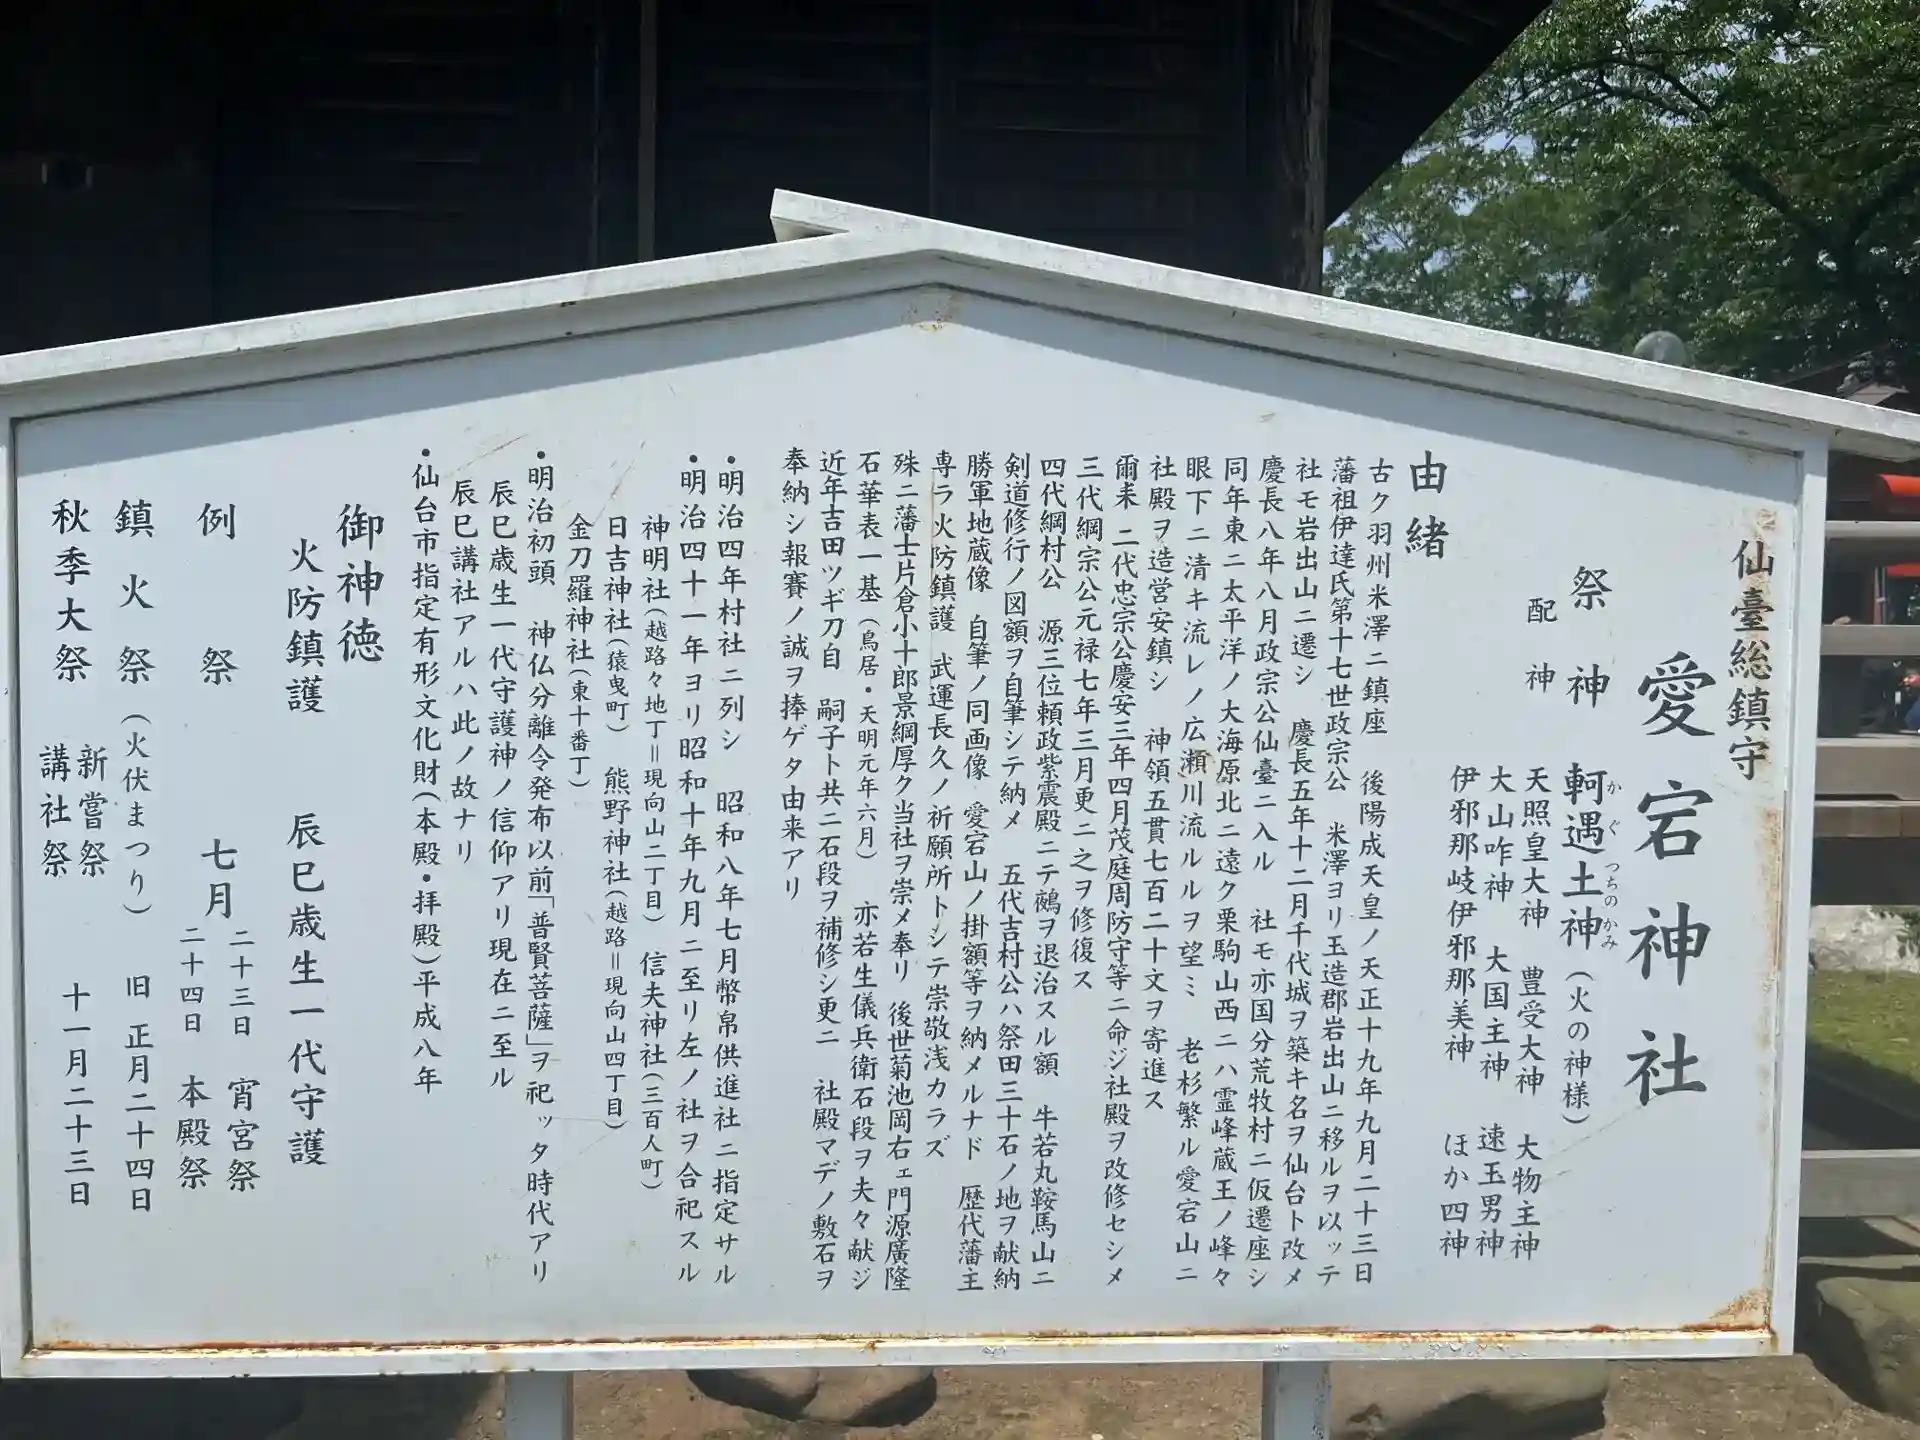 仙臺総鎮守
愛宕神社
祭神 軻遇土神(火の神様)
かぐつちのかみ
配神 天照皇大神 豊受大神 大物主神
大山咋神 大国主神 速玉男神
伊邪那岐伊邪那美神 ほか四神
由緒
古ク羽州米澤ニ鎮座 後陽成天皇ノ天正十九年九月二十三日
藩祖伊達氏第十七世政宗公 米澤ヨリ玉造郡岩出山ニ移ルヲ以ッテ
社モ岩出山ニ遷シ 慶長五年十二月千代城ヲ築キ名ヲ仙台ト改メ
慶長八年八月政宗公仙臺ニ入ル 社モ亦国分荒牧村ニ仮遷座シ
同年東ニ太平洋ノ大海原北ニ遠ク栗駒山西ニハ霊峰蔵王ノ峰々
眼下ニ清キ流レノ広瀬川流ルルヲ望ミ 老杉繁ル愛宕山ニ
社殿ヲ造営安鎮シ 神領五貫七百二十文ヲ寄進ス
爾来 二代忠宗公慶安三年四月茂庭周防守等ニ命ジ社殿ヲ改修セシメ
三代綱宗公元禄七年三月更ニ之ヲ修復ス
四代綱村公 源三位頼政紫震殿ニテ鵺ヲ退治スル額 牛若丸鞍馬山ニ
剣道修行ノ図額ヲ自筆シテ納メ 五代吉村公ハ祭田三十石ノ地ヲ献納
勝軍地蔵像 自筆ノ同画像 愛宕山ノ掛額等ヲ納メルナド 歴代藩主
専ラ火防鎮護 武運長久ノ祈願所トシテ崇敬浅カラズ
殊ニ藩士片倉小十郎景綱厚ク当社ヲ崇メ奉リ 後世菊池岡右ェ門源廣隆
石華表一基(鳥居・天明元年六月) 亦若生儀兵衛石段ヲ夫々献ジ
近年吉田ツギ刀自 嗣子ト共ニ石段ヲ補修シ更ニ 社殿マデノ敷石ヲ
奉納シ報賽ノ誠ヲ捧ゲタ由来アリ
・明治四年村社ニ列シ 昭和八年七月幣帛供進社ニ指定サル
・明治四十一年ヨリ昭和十年九月ニ至リ左ノ社ヲ合祀スル
神明社(越路々地丁=現向山二丁目) 信夫神社(三百人町)
日吉神社(猿曳町) 熊野神社(越路=現向山四丁目)
金刀羅神社(東十番丁)
・明治初頭 神仏分離令発布以前「普賢菩薩」ヲ祀ッタ時代アリ
辰巳歳生一代守護神ノ信仰アリ現在ニ至ル
辰巳講社アルハ此ノ故ナリ
・仙台市指定有形文化財(本殿・拝殿)平成八年
御神徳
火防鎮護 辰巳歳生一代守護
例祭 七月 二十三日 宵宮祭
二十四日 本殿祭
鎮火祭(火伏まつり) 旧正月二十四日
秋季大祭 新嘗祭
講社祭 十一月二十三日